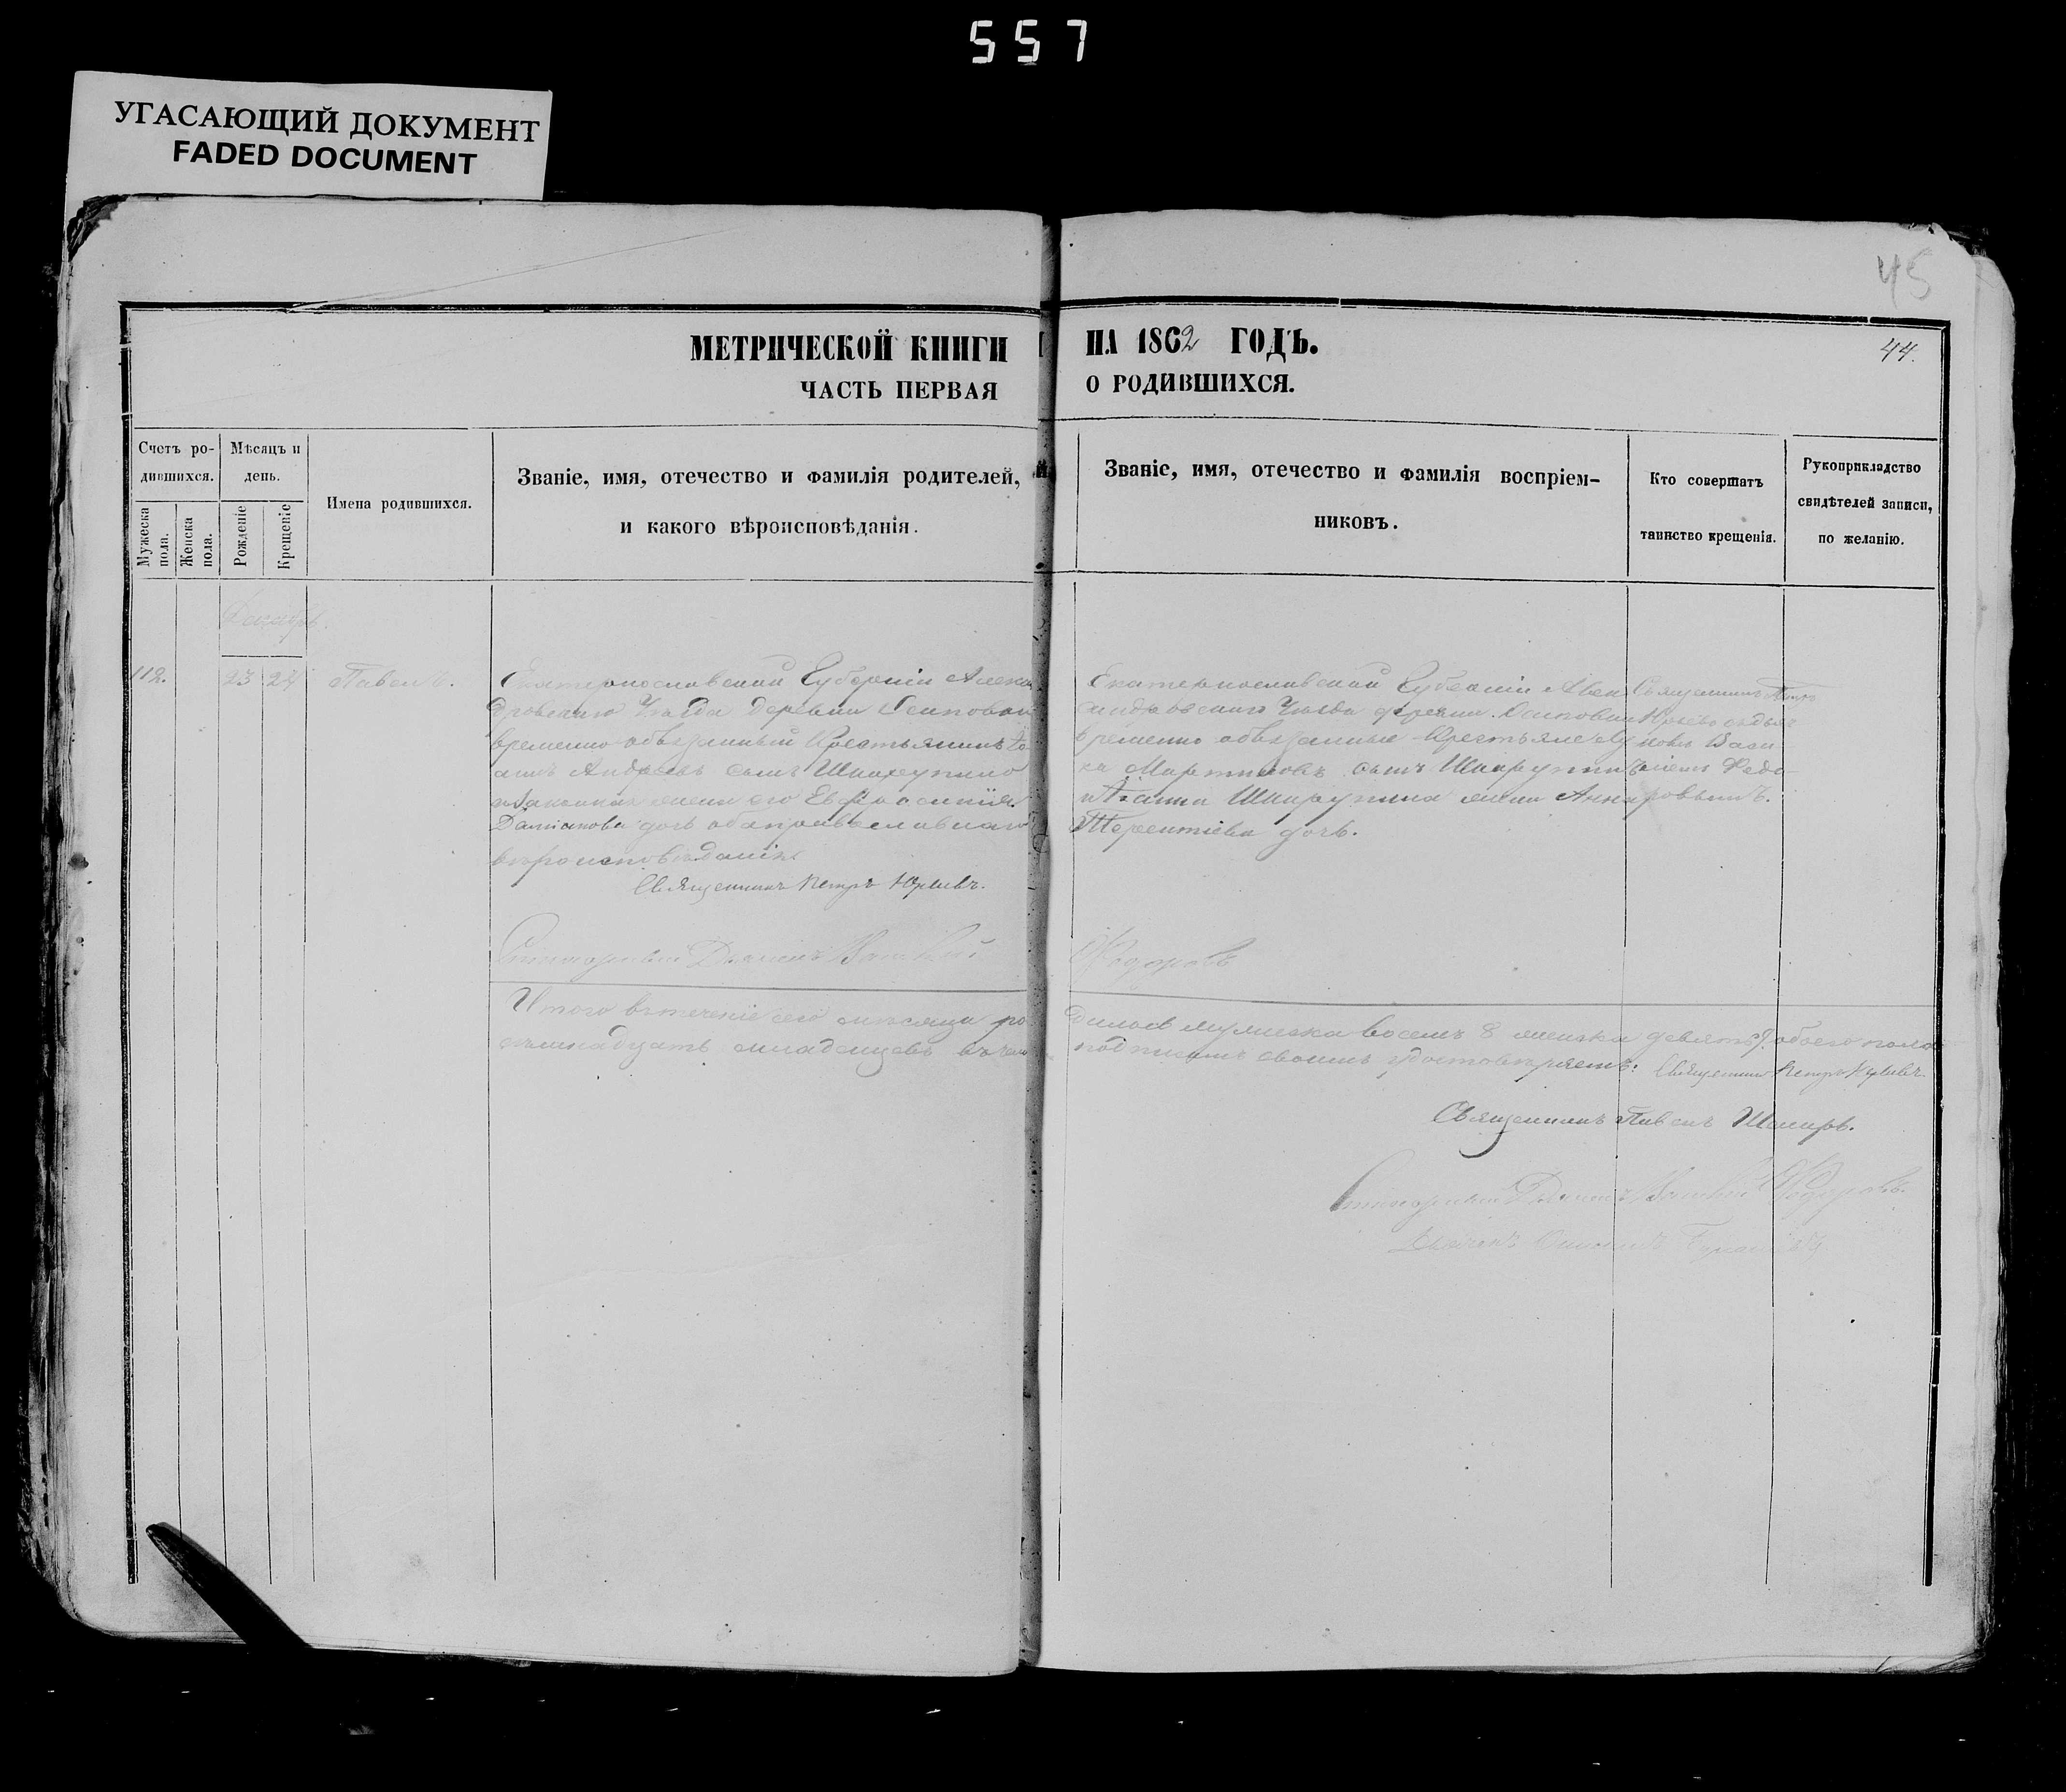 557
УГАСАЮЩИЙ ДОКУМЕНТ
FADED DOCUMENT
45
МЕТРИЧЕСКОЙ КНИГИ НА 1862 ГОДЪ.
44.
ЧАСТЬ ПЕРВАЯ О РОДИВШИХСЯ.
Счетъ ро-
дившихся.
Мужеска
пола.
Женска
пола.
Мѣсяцъ и
день.
Рожденіе
Крещеніе
Имена родившихся.
Званіе, имя, отечество и фамилія родителей,
и какого вѣроисповѣданія.
Званіе, имя, отечество и фамилія воспріем-
никовъ.
Кто совершатъ
таинство крещенія.
Рукоприкладство
свидѣтелей записи,
по желанію.
Декабрь.
112.
23
Павелъ.
Екатеринославской Губерніи Алекса
дровскаго Уѣзда деревни
временно-обязанный Крестьянинъ
Андреевъ сынъ
законная жена его Евфросинія
Даміанова дочь оба православнаго
вѣроисповѣданія.
Священникъ Петръ Юрьевъ.
Дьячекъ
Екатеринославской Губерніи Алек
сандровскаго Уѣзда деревни
временно обязанные Крестьяне Лу
ка Мартиновъ сынъ
жена Анна
Терентіева дочь.
Федоровъ
Священникъ Петръ
Юрьевъ съ дья
комъ Васи
ліемъ Федо
ровымъ.
Итого въ теченіе сего мѣсяца ро
дилось мужеска восемь 8 женска девять 9. обоего пола
семнадцать младенцевъ въ чемъ
подписомъ своимъ удостовѣряемъ: Священникъ Петръ Юрьевъ.
Священникъ Павелъ
Дьячекъ Василій Федоровъ.